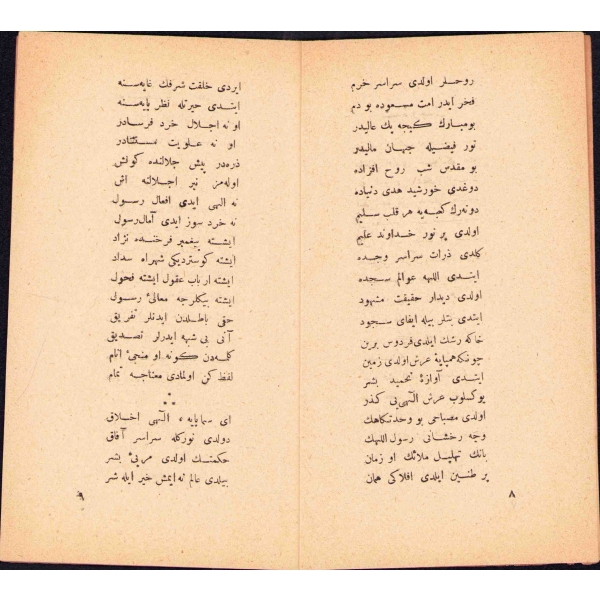 روحلر اولدی سراسر خرم
فخر ایدر امت مسعوده بو دم
بومبارك كیجه پك عالیدر
نور فیضیله جهان مالیدر
بو مقدس شب روح افزاده
دوغدی خورشید هدی دنیاده
دونه‌رك كعبه‌یه هر قلب سلیم
اولدی پر نور خداوند علیم
كلدی ذرات سراسر وجده
ایتدی اللهه عوالم سجده
اولدی دیدار حقیقت مشهود
ایتدی بتلر بیله ایفای سجود
خاكه رشك ایلدی فردوس برین
چونكه همپایهٔ عرش اولدی زمین
ایتدی آوازهٔ تحمید بشر
یوكلوب عرش الهی‌یی كذر
اولدی مصباحی بو وحدتكاهك
وجه رخشانی رسول اللهك
بانك تهلیل ملائك او زمان
پر طنین ایلدی افلاكی همان
۸
ایردی خلقت شرفك غایه‌سنه
ایتدی حیرتله نظر پایه‌سنه
او نه اجلال خرد فرسادر
او نه علویت مستثنادر
ذره‌در پیش جلالنده كونش
اوله‌مز نیر اجلالنه اش
نه الهی ایدی افعال رسول
نه خرد سوز ایدی آمال رسول
ایشته پیغمبر فرخنده نژاد
ایشته كوستردیكی شهراه سداد
ایشته ارباب عقول ایشته فحول
ایشته بیكلرجه معالیٔ رسول
حقی باطلدن ایدنلر تفریق
آنی بی شبهه ایدرلر تصدیق
كلمه‌دن كونه او منجیٔ انام
لفظ كن اولمادی معناجه تمام
* * *
ای سماپایه، الهی اخلاق
دولدی نوركله سراسر آفاق
حكمتك اولدی مربیٔ بشر
بیلدی عالم نه ایمش خیر ایله شر
۹